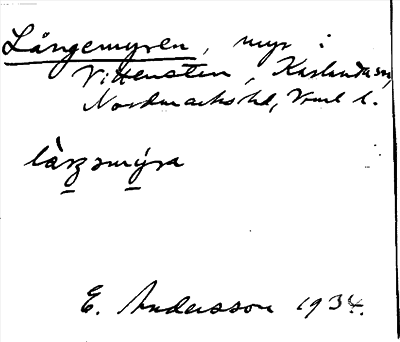 Långemyren, myr i
Vittensten, Karlanda sn,
Nordmarks hd, Vrml l.
E. Andersson 1934.